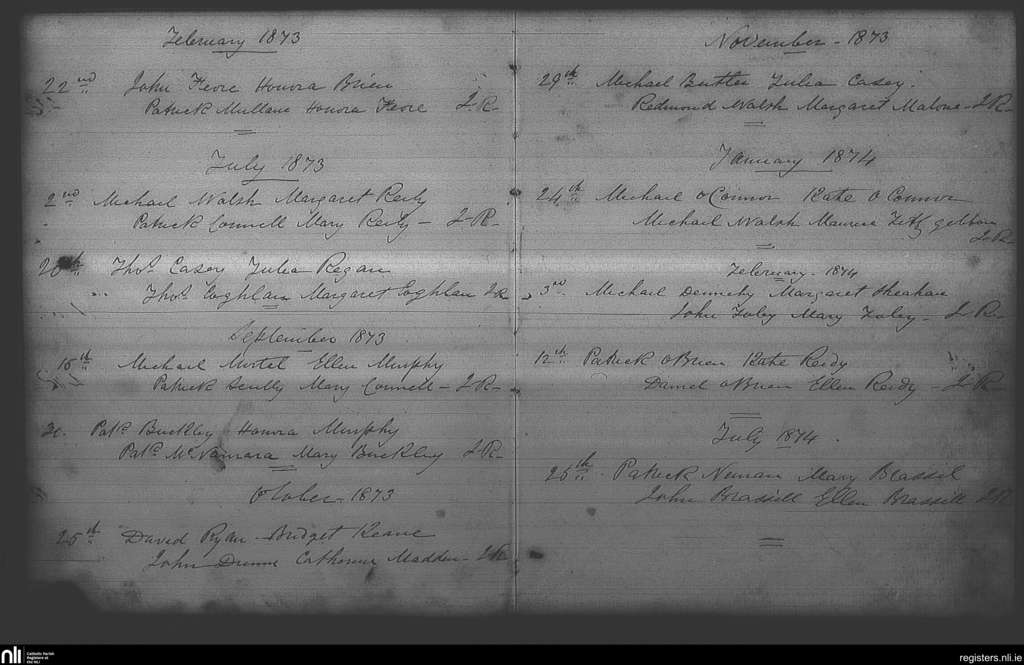 February 1873
22nd John Keore Honora Brien
Patrick Mullane Honora Keore J-R-
July 1873
2nd Michael Walsh Margaret Reidy
Patrick Connell Mary Reidy - J-R-
20th Thos. Casey Julia Regan
Thos. Coghlan Margaret Coghlan J-R
September 1873
15th Michael Ellen Murphy
Patrick Scully Mary Connell - J-R-
Patk. Buckley Honora Murphy
Patk. McNamara Mary Buckley J-R-
October 1873
25th David Ryan - Bridget Keane
John Catherine Madden - J-R
November - 1873
29th Michael Butler Julia Casey.
Redmond Walsh Margaret Malone - J-R-
January 1874
24th Michael O'Connor Kate O'Connor
Michael Walsh Maurice Fitzgibbon
J-R-
February - 1874
3rd. Michael Dennehy Margaret Sheahan
John Foley Mary Foley - J-R-
12th. Patrick O'Brien Kate Reidy
Daniel O'Brien Ellen Reidy - J-R-
July 1874.
25th Patrick Nunan Mary Brassil
John Brassill Ellen Brassill J-R
nli
Catholic Parish
Registers at
the NLI
registers.nli.ie